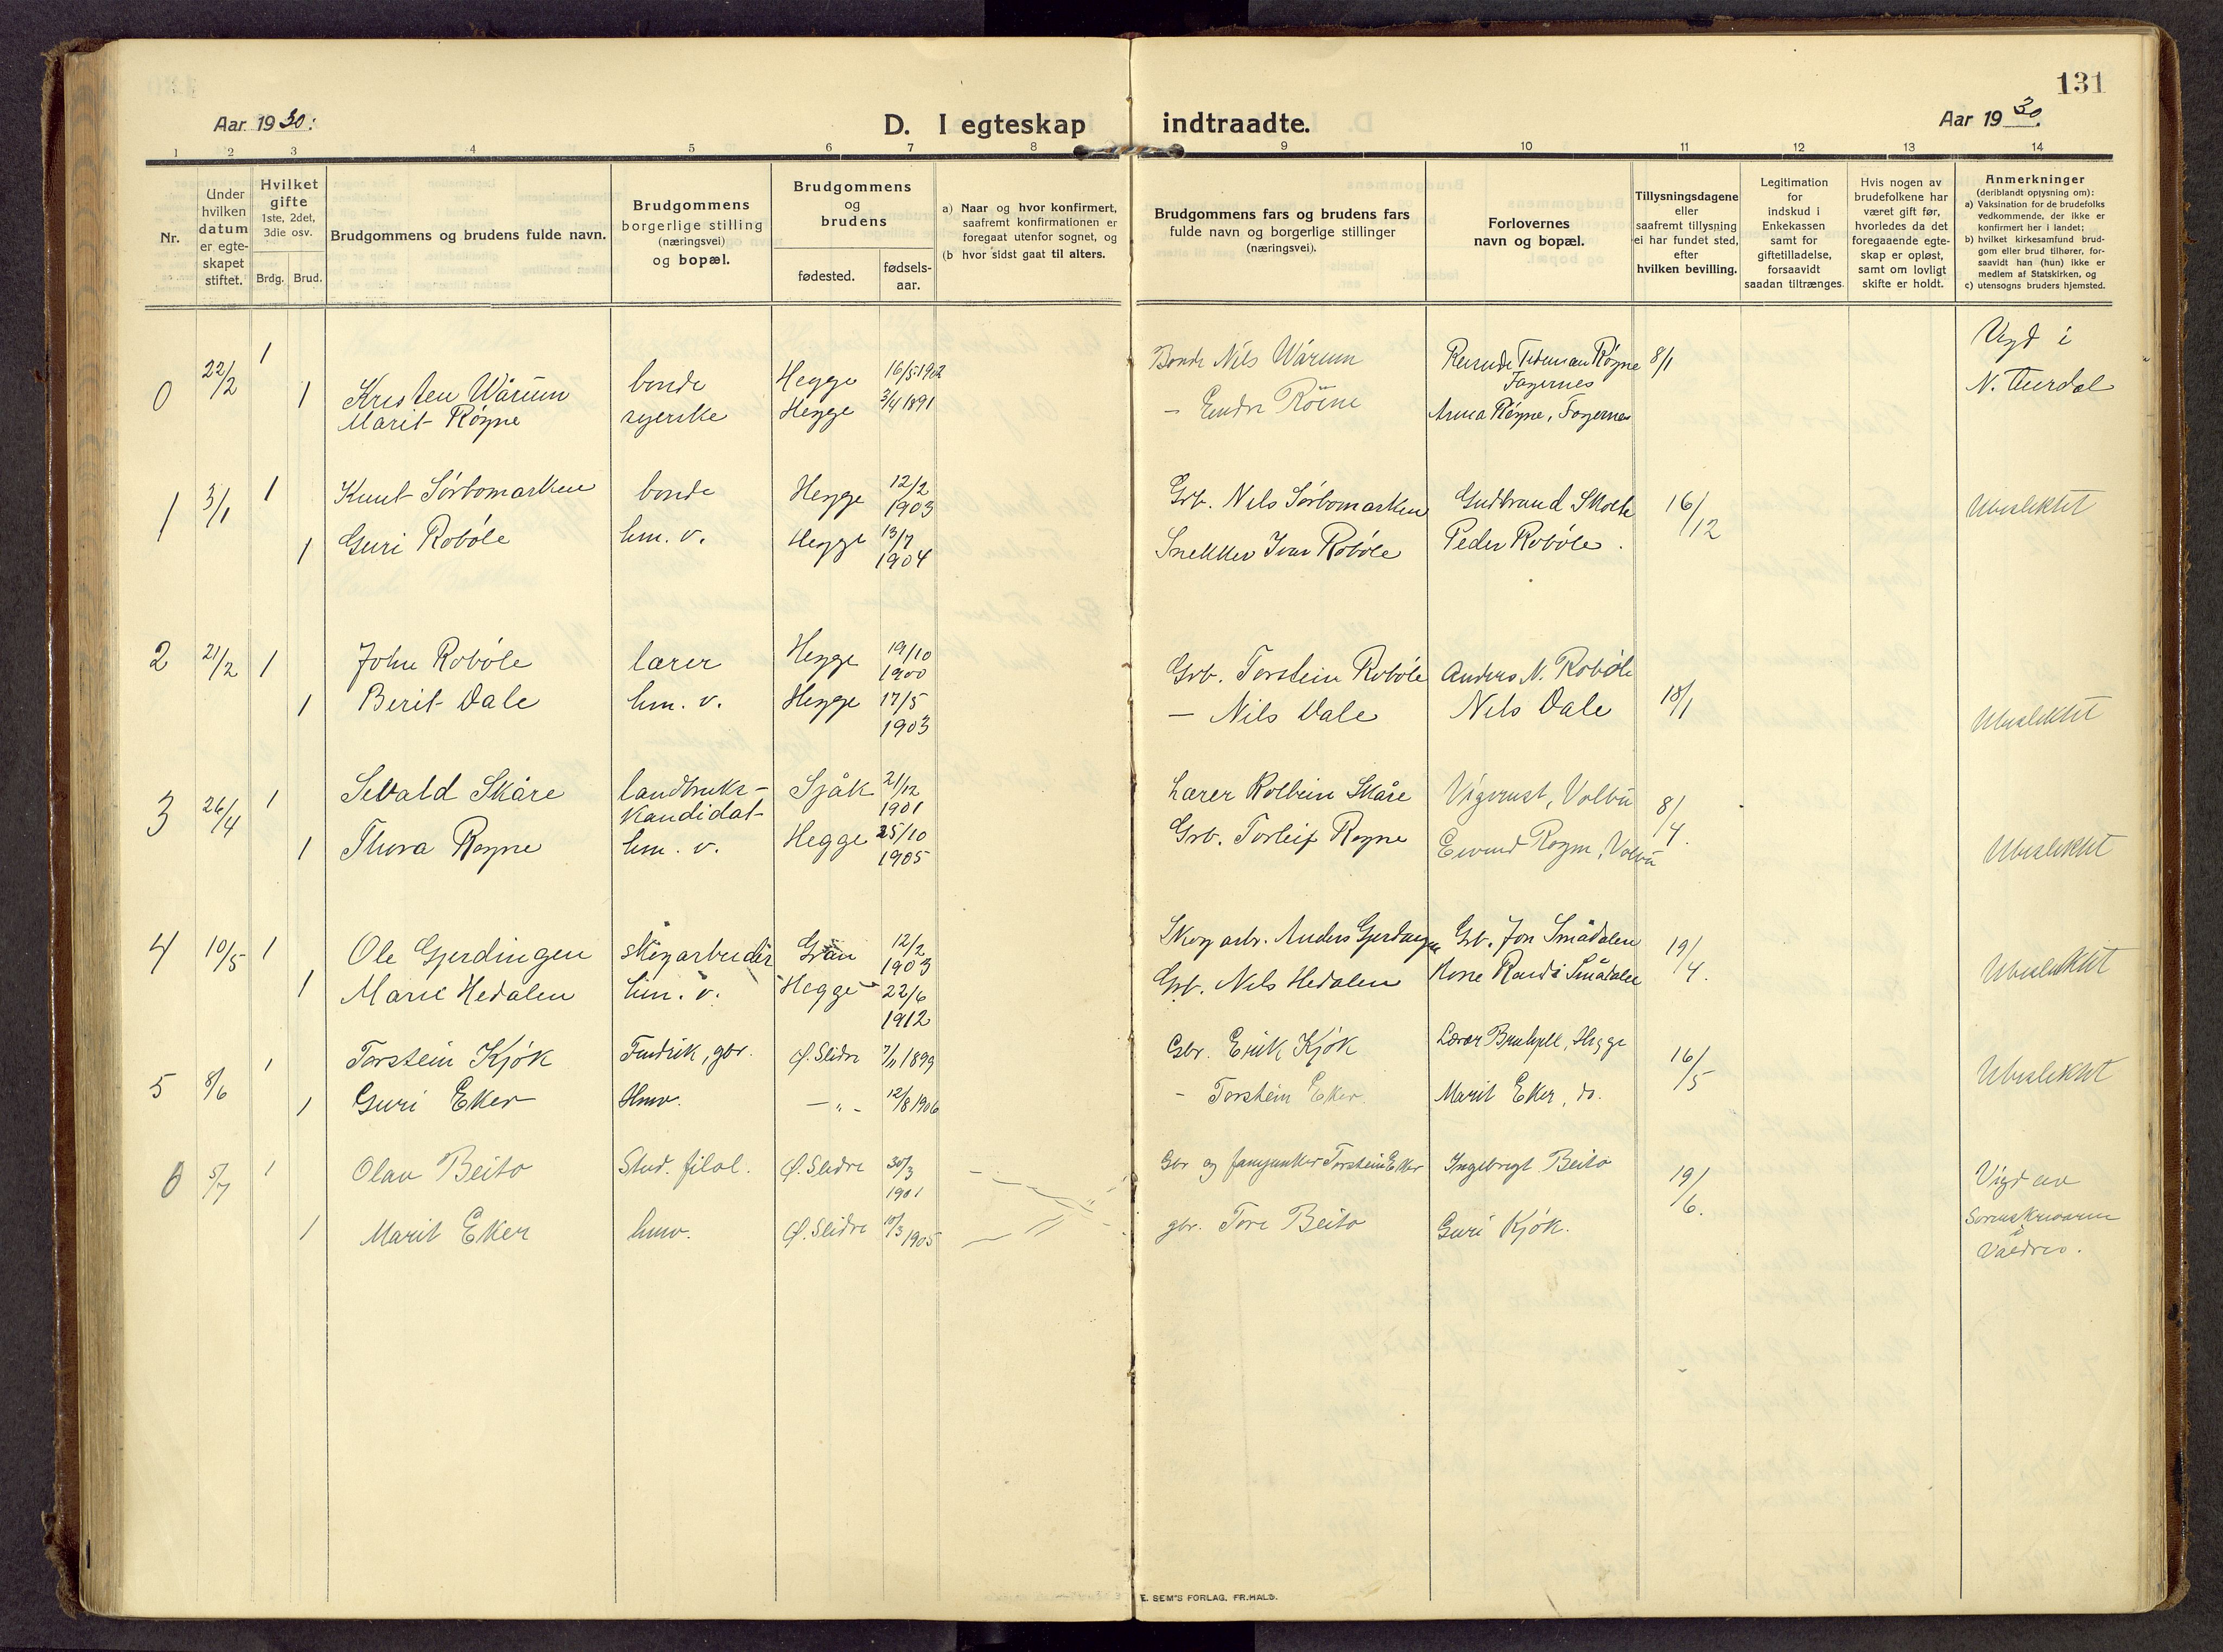 131
Aar 1930.
D. I egteskap indtraadte.
Aar 1930.
1 2 3 4 5 6 7 8 9 10 11 12 13 14
Nr.
Under hvilken datum er egteskapet stiftet.
Hvilket gifte 1ste, 2det, 3die osv.
Brdg. Brud.
Brudgommens og brudens fulde navn.
Brudgommens borgerlige stilling (næringsvei) og bopæl.
Brudgommens og brudens
fødested.
fødselsaar.
a) Naar og hvor konfirmert, saafremt konfirmationen er foregaat utenfor sognet, og
(b hvor sidst gaat til alters.
Brudgommens fars og brudens fars fulde navn og borgerlige stillinger (næringsvei).
Forlovernes navn og bopæl.
Tillysningsdagene eller saafremt tillysning ei har fundet sted, efter hvilken bevilling.
Legitimation for indskud i Enkekassen samt for giftetilladelse, forsaavidt saadan tiltrænges.
Hvis nogen av brudefolkene har været gift før, hvorledes da det foregaaende egteskap er opløst, samt om lovligt skifte er holdt.
Anmerkninger
(deriblandt oplysning om):
a) Vaksination for de brudefolks vedkommende, der ikke er konfirmert her i landet;
b) hvilket kirkesamfund brudgom eller brud tilhører, forsaavidt han (hun) ikke er medlem af Statskirken, og
c) utensogns bruders hjemsted.
0 22/2 1 Kristen Wårum bonde Hegge 16/5 1902 Bonde Nils Wårum Røgne Fagernes 8/1 Vigd i
1 Marit Røgne syerske Hegge 3/4 1891 - Endre Röine Anna Røgne, Fagernes N. Aurdal
1 3/1 1 Knut Sørbomarken bonde Hegge 12/2 1903 Grb. Nils Sørbomarken Gudbrand 16/12 Ubeslektet
1 Guri Robøle hm. v. Hegge 13/7 1904 Snekker Ivar Robøle Peder Robøle.
2 21/2 1 John Robøle lærer Hegge 19/10 1900 Grb. Torstein Robøle Anders N. Robøle 18/1
1 Berit Dale hm. v. Hegge 17/5 1903 - Nils Dale Nils Dale Ubeslektet
3 26/4 1 Sevald Skåre landbruks-kandidat Sjåk 21/12 1901 Lærer Kolbein Skåre Vigerust, Volbu 8/4.
1 Thora Rogne hm. v. Hegge 25/10 1905 Grb. Torleif Rogne Eivind Rogne, Volbu Ubeslektet
4 10/5 1 Ole Gjerdingen skogarbeider Gran 12/2 1903 Skogarb. Anders Gjerdingen Grb. Jon Smådalen 19/4. Ubeslektet
1 Marie Hedalen hm. v. Hegge 22/6 1912 Grb. Nils Hedalen Kone Randi Smådalen
5 8/6 1 Torstein Kjøk gbr. Ø. Slidre 7/11 1899 Gbr. Erik Kjøk Lærer Hegge 16/5 Ubeslektet
1 Guri Eker Hmv. - " - 12/8 1906 - Torstein Eker Marit Eker, do.
6 5/7 1 Olav Beito Stud. filol. Ø. Slidre 30/3 1901 Gbr og fanejunker Torstein Eker Ingebrigt Beito 19/6. Vigd av Sorenskriveren i Valdres.
1 Marit Eker hmv. Ø. Slidre 10/3 1905 gbr. Tore Beito Guri Kjøk.
E. SEM'S FORLAG, FR.HALD.